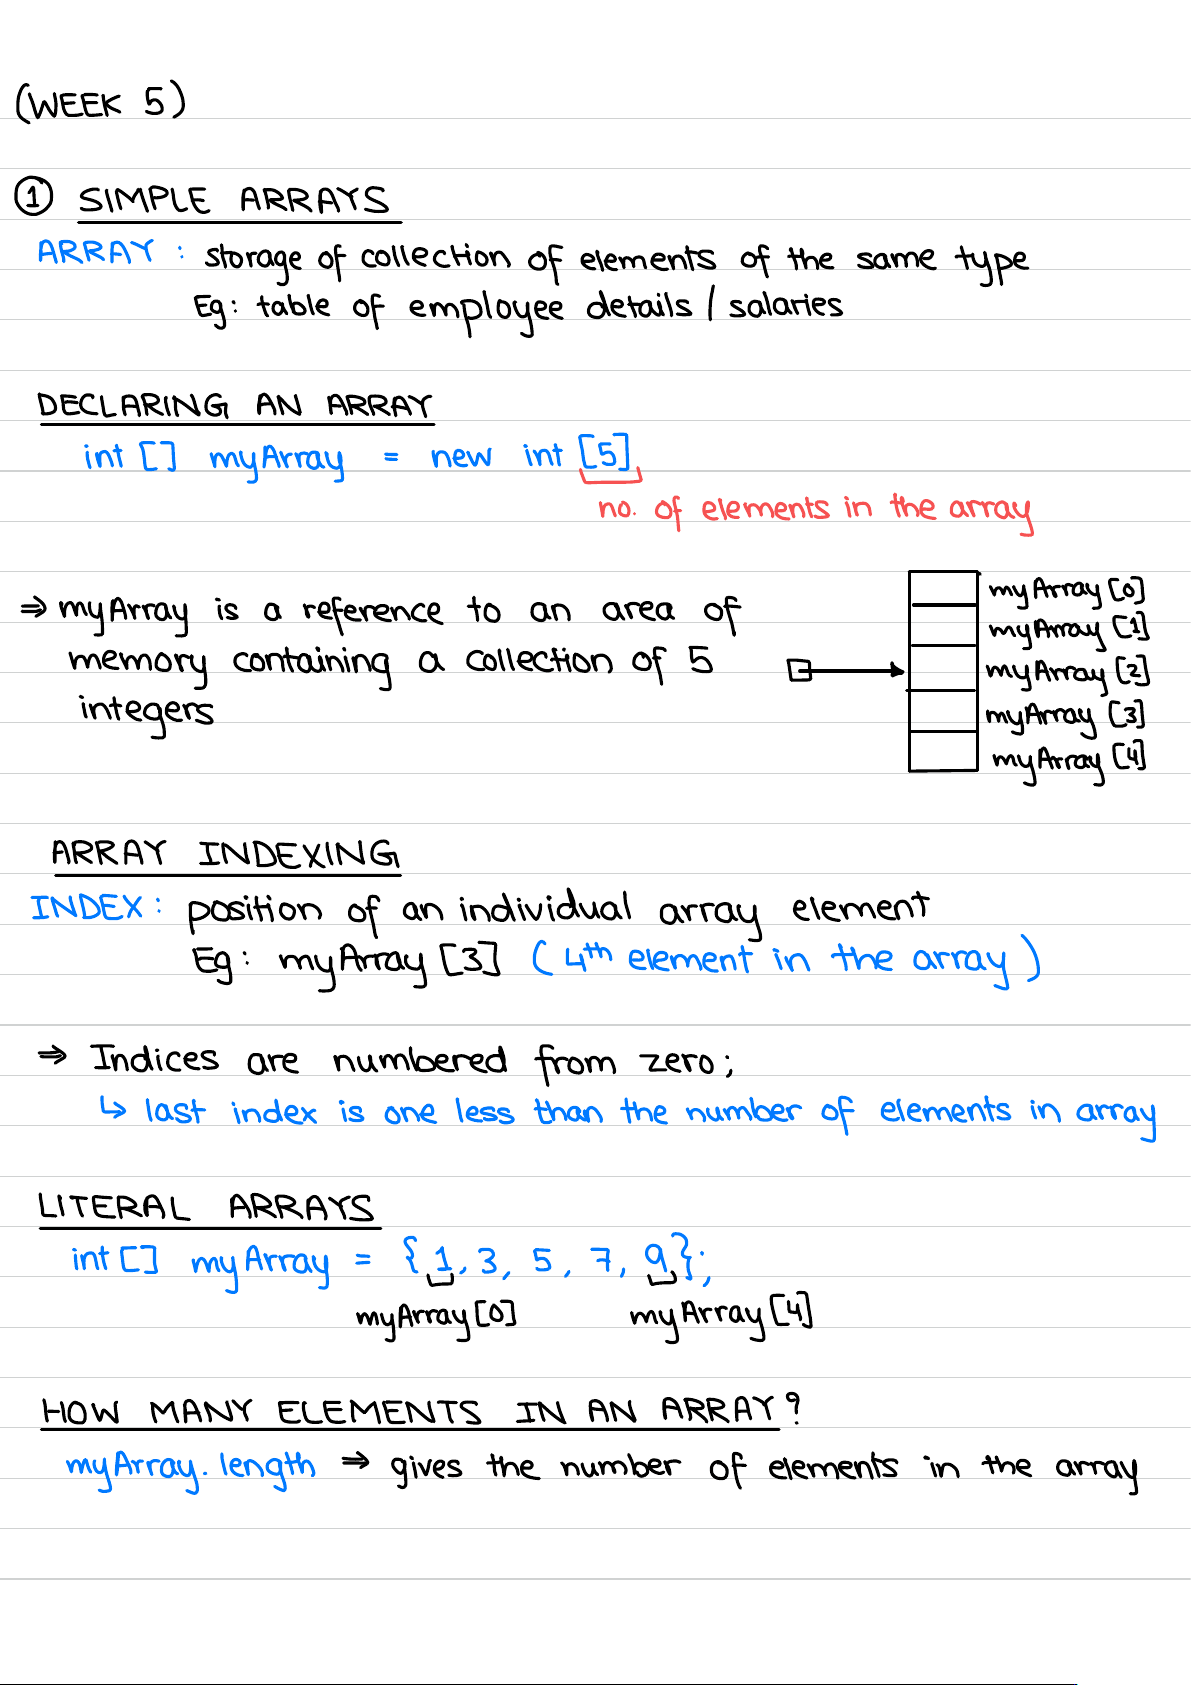 (WEEK 5)
① SIMPLE ARRAYS
ARRAY : storage of collection of elements of the same type
Eg: table of employee details / salaries
DECLARING AN ARRAY
int [] myArray = new int [5]
no. of elements in the array
⇒ myArray is a reference to an area of
memory containing a collection of 5
integers
myArray [0]
myArray [1]
myArray [2]
myArray [3]
myArray [4]
ARRAY INDEXING
INDEX : position of an individual array element
Eg: myArray [3] (4th element in the array)
⇒ Indices are numbered from zero;
↳ last index is one less than the number of elements in array
LITERAL ARRAYS
int [] myArray = {1, 3, 5, 7, 9};
myArray [0] myArray [4]
HOW MANY ELEMENTS IN AN ARRAY?
myArray.length ⇒ gives the number of elements in the array